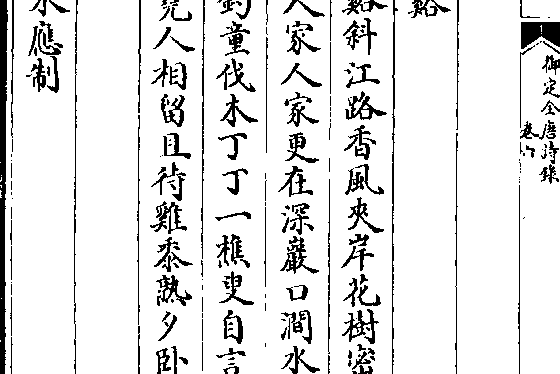 御定全唐詩錄
卷六
谿
谿斜江路香風夾岸花樹密
人家人家更在深巖口澗水
釣童伐木丁丁一樵叟自言
人相留且待雞黍熟夕卧
應制